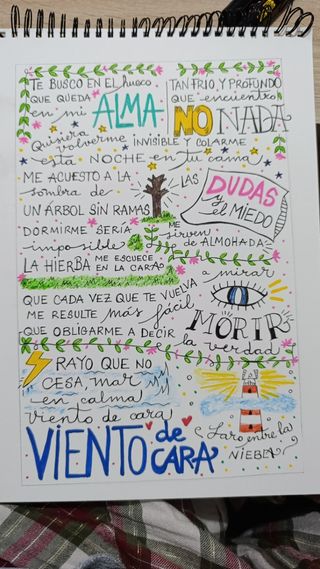 TE BUSCO EN EL hueco
QUE QUEDA
en mi ALMA
TAN FRIO, Y PROFUNDO
QUE encuentro
NO NADA
Quiero volverme INVISIBLE Y COLARME
esta NOCHE en tu cama
ME ACUESTO A LA
sombra de
UN ÁRBOL SIN RAMAS
LAS DUDAS
y el MIEDO
ME sirven
DE ALMOHADA
DORMIRME SERÍA
imposible
LA HIERBA ME ESCUECE
EN LA CARA
QUE CADA VEZ QUE TE VUELVA
a mirar
ME RESULTE más fácil
MORIR
QUE OBLIGARME A DECIR la verdad
RAYO QUE NO
CESA, mar
en calma
viento de cara
VIENTO de CARA
faro entre la
NIEBLA